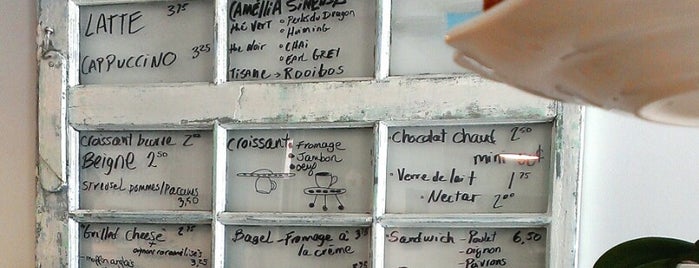 LATTE 3.75
CAPPUCCINO 3.25
CAMÉLLIA SINENSIS
thé VERT ◦ Perles du Dragon
◦ Huming
thé Noir ◦ CHAI
◦ EARL GREY
TISANE → ROOIBOS
Croissant beurre 2.00
Beigne 2.50
STREUSEL POMMES/Pacanes
3,50
CROISSANT • Fromage
• Jambon
• oeuf
• Chocolat chaud 2.50
mini
• Verre de lait 1.75
• Nectar 2.50
"Grilled cheese" 3.75
+
- muffin anglais 3.25
Bagel - Fromage à 3.75
la crème
Sandwich - Poulet 6,50
- oignon
- Poivrons